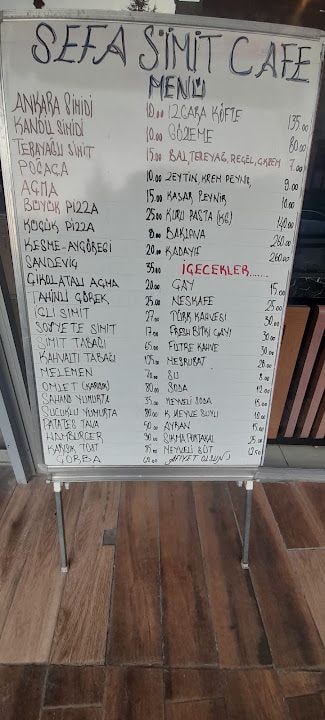 SEFA SİMİT CAFE
MENÜ
ANKARA SİMİDİ 10.00
KANDİL SİMİDİ 10.00
TERAYAĞLI SİMİT 15.00
POĞAÇA 10.00
AÇMA 15.00
BÜYÜK PİZZA 25.00
KÜÇÜK PİZZA 8.00
KESME-AYÇÖREĞİ 20.00
SANDEVİÇ 35.00
ÇİKOLATALI AÇMA 20.00
TAHİNLİ ÇÖREK 25.00
İÇLİ SİMİT
SOVYETE SİMİT
SİMİT TABAĞI 65.00
KAHVALTI TABAĞI
MELEMEN
OMLET (KARIŞIK) 80.00
SAHAND YUMURTA
SUCUKLU YUMURTA
PATATES TAVA
HAMBURGER
KARIŞIK TOST
ÇORBA
IZGARA KÖFTE 135.00
GÖZLEME 80.00
BAL, TEREYAĞ, REÇEL, Ç.KREM 7.00
ZEYTİN, KREM PEYNİR 9.00
KAŞAR PEYNİR 10.00
KURU PASTA (KG) 140.00
BAKLAVA 260.00
KADAYIF 260.00
İÇECEKLER......
ÇAY 15.00
NESKAFE 25.00
TÜRK KAHVESİ 30.00
FRESH BİTKİ ÇAYI 30.00
FİLTRE KAHVE 30.00
MEŞRUBAT
SU 8.00
SODA 12.00
MEYVELİ SODA 15.00
K. MEYVE SUYU 10.00
AYRAN 15.00
SIKMA PORTAKAL
MEYVELİ SÜT
AFİYET OLSUN